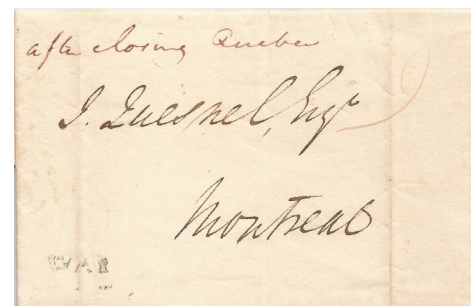 after closing Quebec
J. Quesnel, Esqr
Montreal